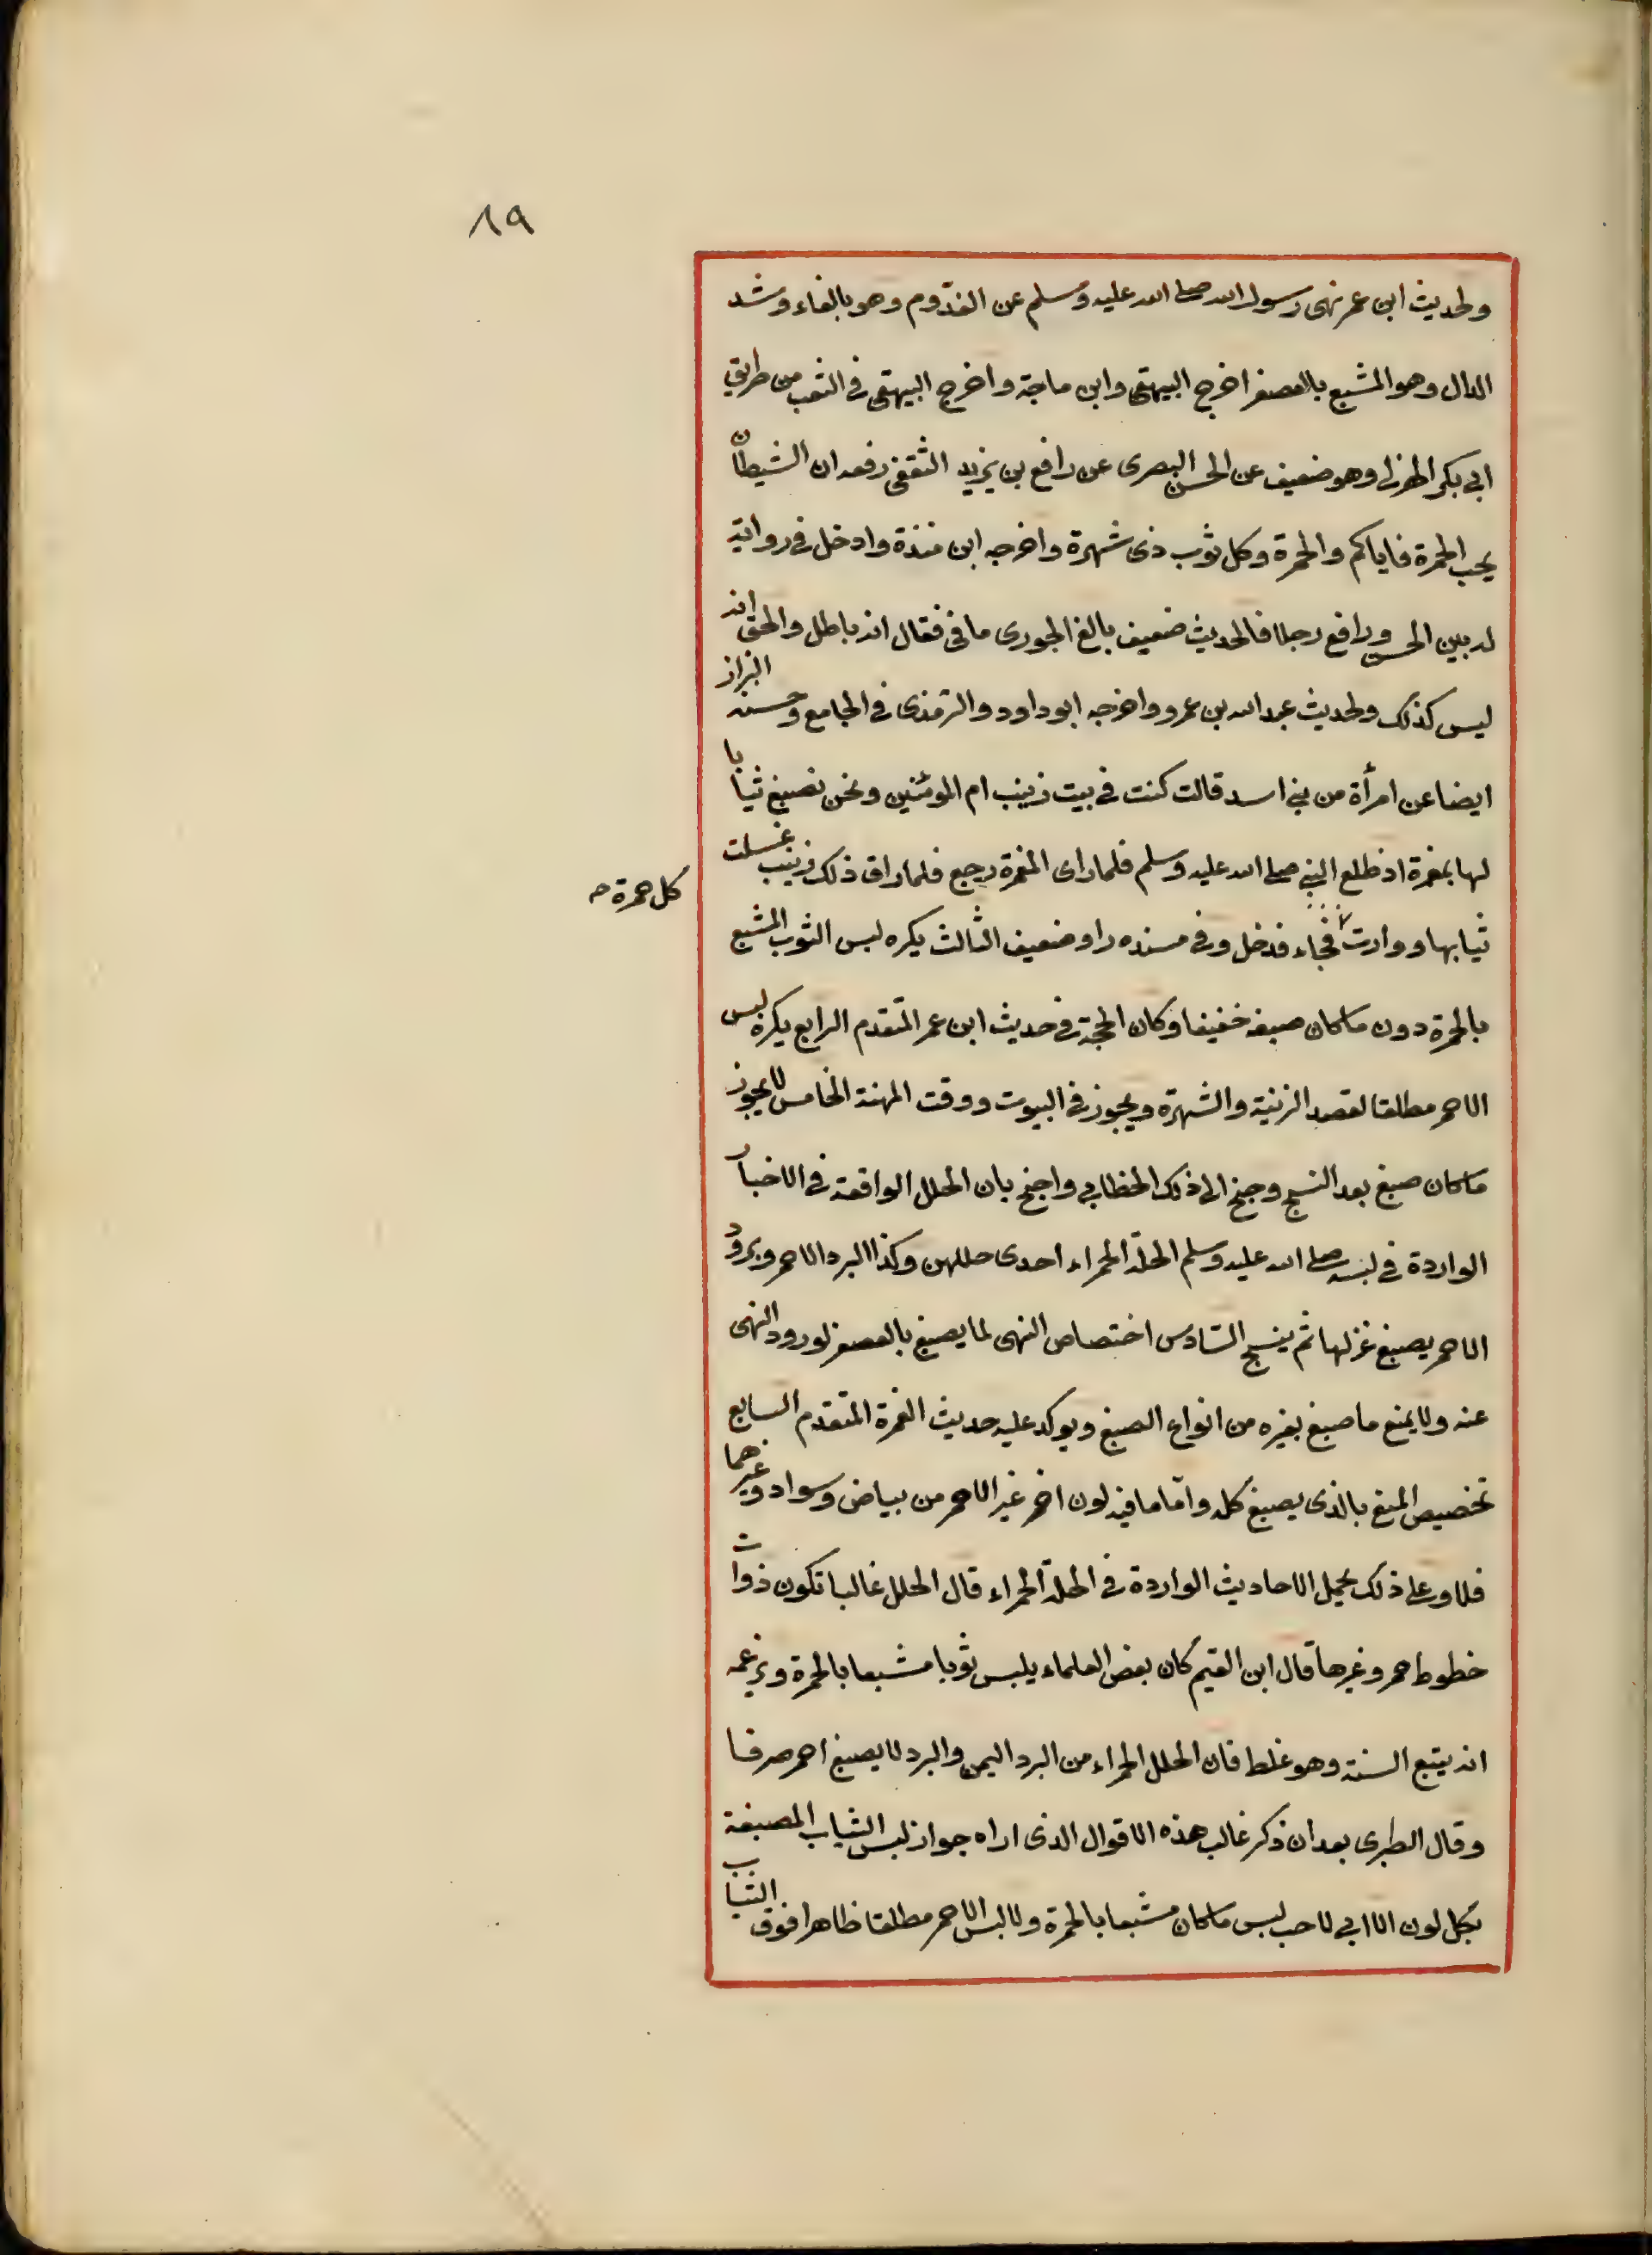 ٨٩
ولحديث ابن عمر نهى رسول الله صلى الله عليه وسلم عن الفدّوم وهو بالفاء وشد
الدال وهو المشبع بالعصفر اخرج البيهقى وابن ماجة واخرج البيهقى فى الشعب من طريق
ابى بكر الهزلى وهو ضعيف عن الحسن البصرى عن رافع بن يزيد الثقفى رفعه ان الشيطان
يحب الحمرة فاياكم والحمرة وكل ثوب ذى شهرة واخرجه ابن منذة وادخل فى رواية
له بين الحسن ورافع رجلا فالحديث ضعيف بالغ الجورى ما فى فقال انه باطل والحق انه
ليس كذلك ولحديث عبد الله بن عمرو واخرجه ابو داود والترمذى فى الجامع وحسنه البزاز
ايضا عن امرأة من بنى اسد قالت كنت فى بيت زينب ام المؤمنين ونحن نصبغ ثيابا
لها بمغرة اذ طلع النبى صلى الله عليه وسلم فلما راى المغرة رجع فلما راق ذلك زينب غسلت
ثيابها ووارت فجاء فدخل وفى مسنده راو ضعيف الثالث يكره لبس الثوب المشبع
كل حمرة
بالحمرة دون ما كان صبغه خفيفا وكان الحجة فى حديث ابن عمر المتقدم الرابع يكره لبس
الاحمر مطلقا لقصد الزنية والشهرة ويجوز فى البيوت ووقت المهنة الخامس لا يجوز
ما كان صبغ بعد النسج وجنح الى ذلك الخطابى واحتج بان الحلل الواقعة فى الاخبار
الواردة فى لبسه صلى الله عليه وسلم الحلة الحمراء احدى حللهن وكذا البرد الاحمر وبرود
الاحمر يصبغ غزلها ثم ينسج السّادس اختصاص النهى لما يصبغ بالعصفر لورود النهى
عنه ولا يمنع ما صبغ بغيره من انواع الصبغ ويوكد عليه حديث الغمرة المتقدم السابع
تخصيص المنع بالذى يصبغ كله وامّا ما فيه لون اخر غير الاحمر من بياض وسواد وغيرهما
فلا وعلى ذلك يحمل الاحاديث الواردة فى الحلة الحمراء قال الحلل غالبا تكون ذوات
خطوط حمر وغيرها قال ابن القيم كان بعض العلماء يلبس ثوبا مشبعا بالحمرة ويزعمه
انه يتبع السنة وهو غلط فان الحلل الحمراء من البرد اليمن والبرد لا يصبغ احمر صرفا
وقال الطبرى بعد ان ذكر غالب هذه الاقوال الذى اراه جواز لبس الثياب المصبغة
بكل لون الا انى لا حب لبس ما كان مشبعا بالحمرة ولا لبس الاحمر مطلقا ظاهرا فوق الثياب